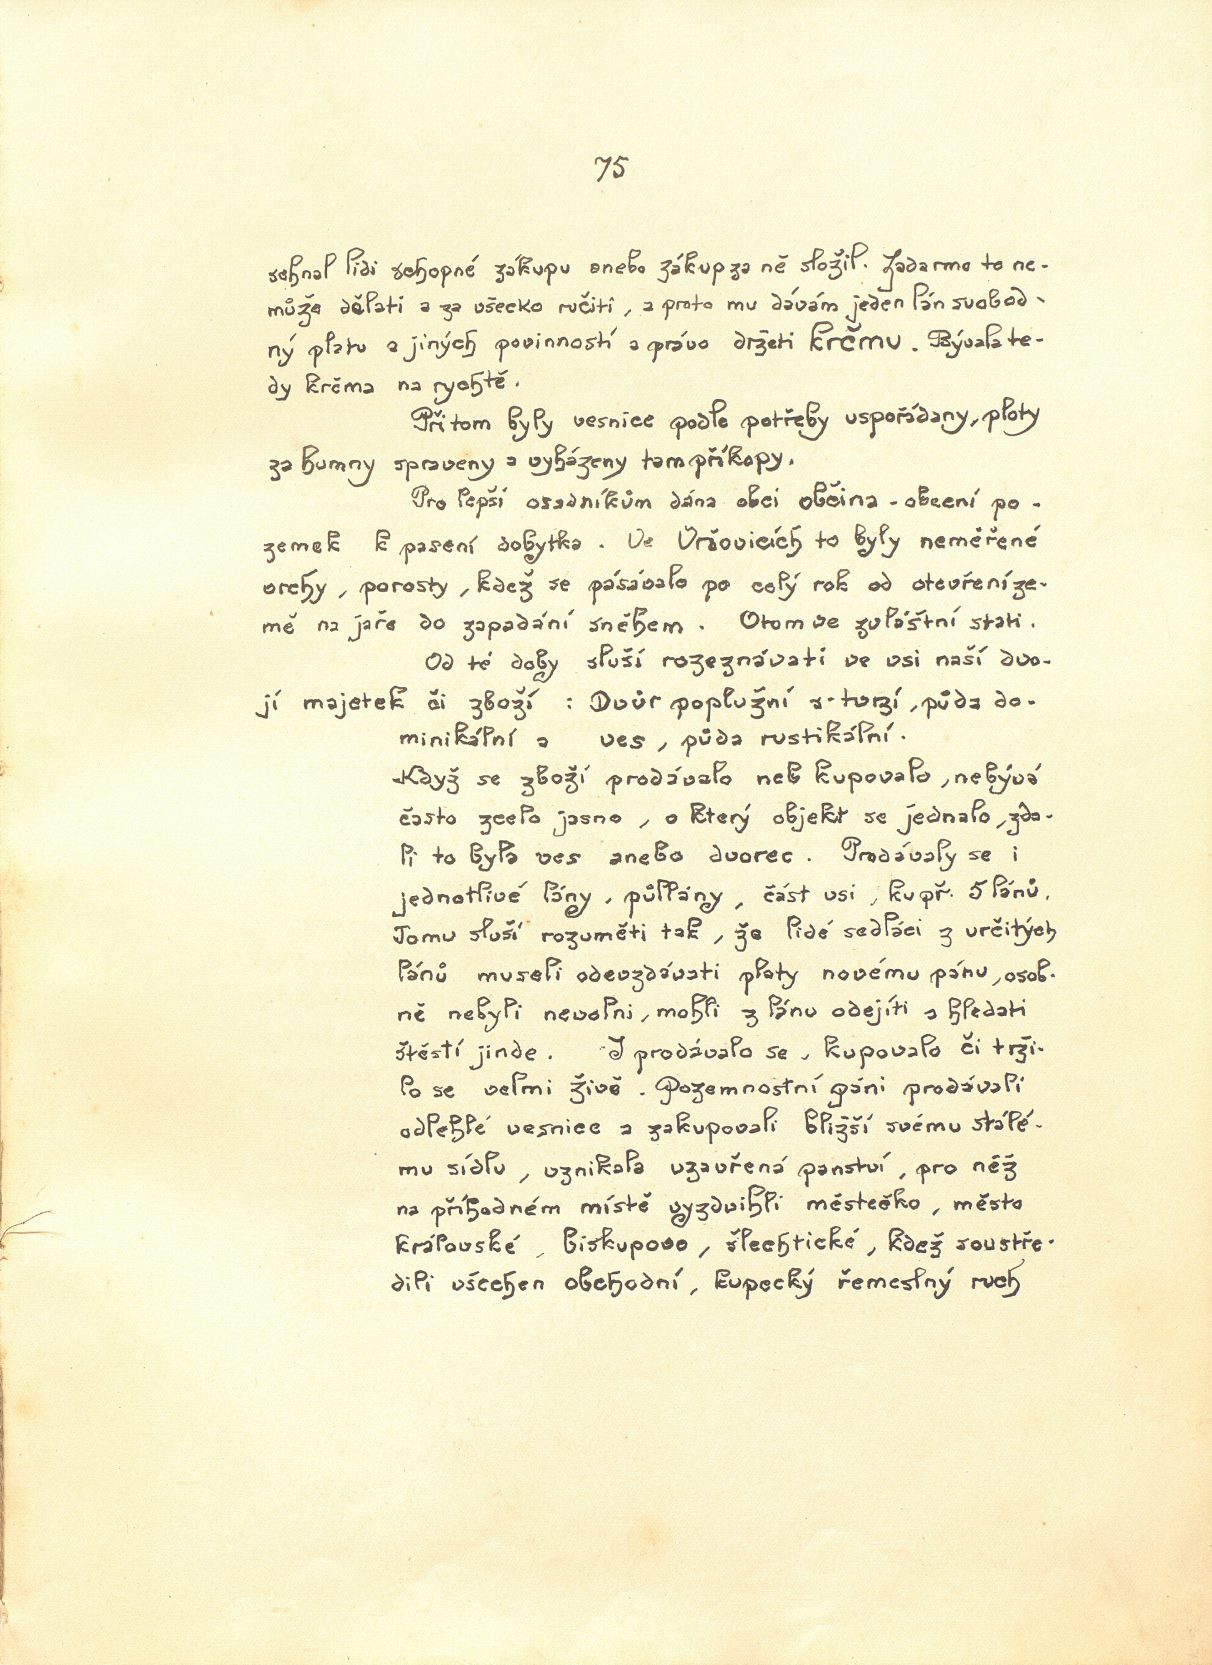 75
sehnal lidi schopné zákupu anebo zákup za ně složil. Zadarmo to ne-
může dělati a za všecko ručiti, a proto mu dávám jeden lán svobod-
ný platu a jiných povinností a právo držeti krčmu. Bývala te-
dy krčma na rychtě.
Při tom byly vesnice podle potřeby uspořádany, ploty
za humny spraveny a vyházeny tam příkopy.
Pro lepší osadníkům dána obci občina - obecní po-
zemek k pasení dobytka. Ve Vršovicích to byly neměřené
vrchy, porosty, kdež se pásávalo po celý rok od otevření ze-
mě na jaře do zapadání sněhem. O tom ve zvláštní stati.
Od té doby sluší rozeznávati ve vsi naší dvo-
jí majetek či zboží: Dvůr poplužní s tvrzí, půda do-
minikální a ves, půda rustikální.
Když se zboží prodávalo neb kupovalo, nebývá
často zcela jasno, o který objekt se jednalo, zda-
li to byla ves anebo dvorec. Prodávaly se i
jednotlivé lány, půllány, část vsi, kupř. 5 lánů.
Tomu sluší rozuměti tak, že lidé sedláci z určitých
lánů museli odevzdávati platy novému pánu, osob-
ně nebyli nevolni, mohli z lánu odejíti a hledati
štěstí jinde. I prodávalo se, kupovalo či trži-
lo se velmi živě. Pozemnostní páni prodávali
odlehlé vesnice a zakupovali bližší svému stálé-
mu sídlu, vznikala uzavřená panství, pro něž
na příhodném místě vyzdvihli městečko, město
královské, biskupovo, šlechtické, kdež soustře-
dili všechen obchodní, kupecký řemeslný ruch